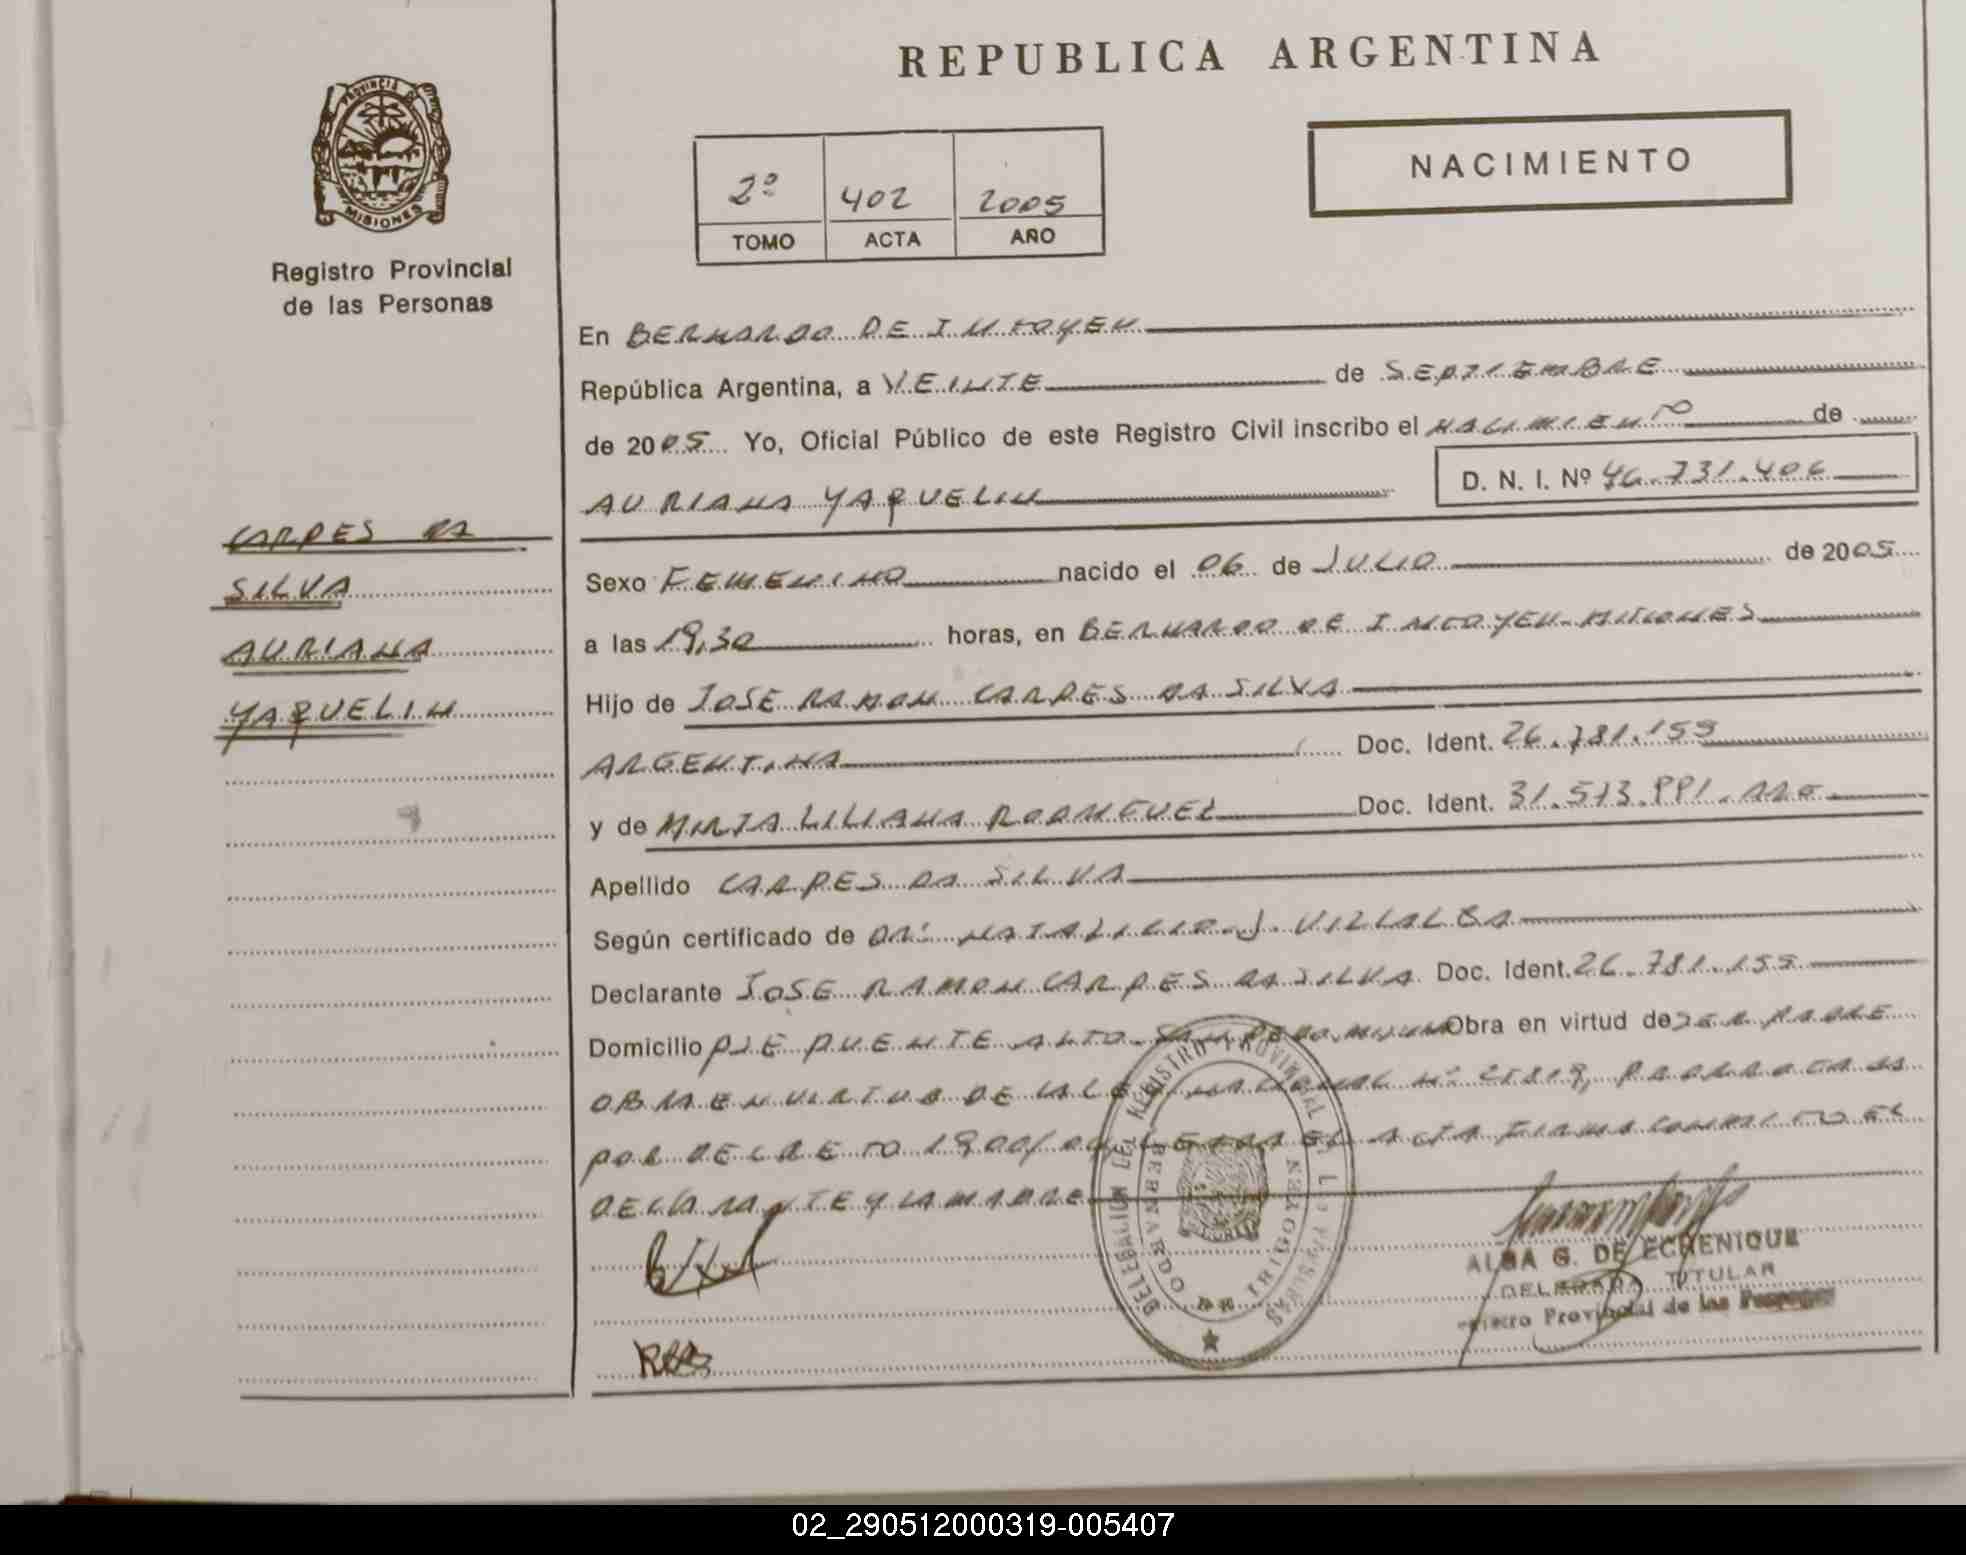 REPUBLICA ARGENTINA
PROVINCIA DE MISIONES
Registro Provincial
de las Personas
2º 402 2005
TOMO ACTA AÑO
NACIMIENTO
En BERNARDO DE IRIGOYEN
República Argentina, a VEINTE de SEPTIEMBRE
de 2005 Yo, Oficial Público de este Registro Civil inscribo el NACIMIENTO de
AURIANA YAQUELIN D. N. I. Nº 46.731.406
CARPES DA
SILVA
AURIANA
YAQUELIN
Sexo FEMENINO nacido el 06 de JULIO de 2005
a las 19,30 horas, en BERNARDO DE IRIGOYEN-MISIONES
Hijo de JOSE RAMON CARPES DA SILVA
ARGENTINA Doc. Ident. 26.781.159
y de MIRTA LILIANA RODRIGUEZ Doc. Ident. 31.573.991. ARG
Apellido CARPES DA SILVA
Según certificado de DR: NATALICIO J. VILLALBA
Declarante JOSE RAMON CARPES DA SILVA Doc. Ident. 26.781.159
Domicilio PJE PUENTE ALTO-SAN PEDRO.MISIONES Obra en virtud de SER PADRE
OBRA EN VIRTUD DE LA LEY NACIONAL Nº 25819, PRORROGADA
POR DECRETO 1900/04 LEIDA EL ACTA FIRMA CONMIGO EL
DECLARANTE Y LA MADRE
DELEGACION DEL REGISTRO PROVINCIAL DE LAS PERSONAS
BERNARDO DE IRIGOYEN
ALBA G. DE ECHENIQUE
DELEGADA TITULAR
Registro Provincial de las Personas
02_290512000319-005407